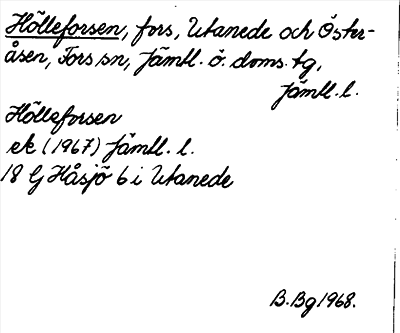 Hölleforsen, fors, Utanede och Öster-
åsen, Fors sn, Jämtl. ö. doms. tg,
Jämtl. l.
Hölleforsen
ek (1967) Jämtl. l.
18 G Håsjö 6 i Utanede
B. Bg 1968.